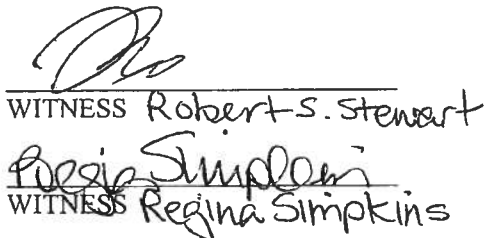 WITNESS Robert S. Stewart
Regina Simpkins
WITNESS Regina Simpkins